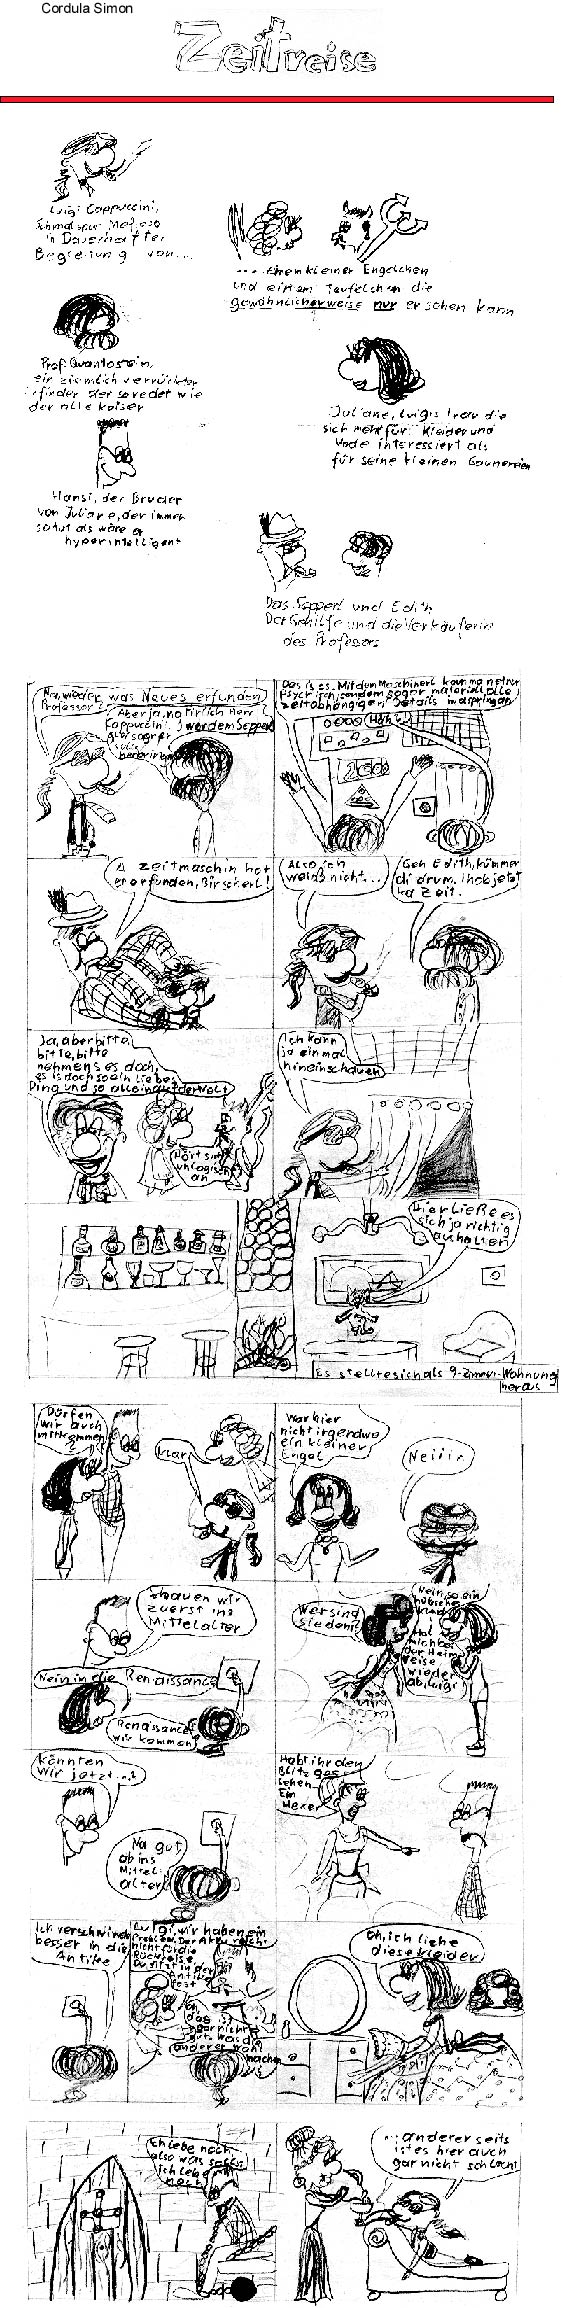 Cordula Simon
Zeitreise
Luigi Cappuccini,
Schmalspur Mafioso
in Dauerhafter
Begleitung von...
....einem kleiner Engelchen
und einem Teufelchen die
gewöhnlicherweise nur er sehen kann
Prof. Quantostein,
ein ziemlich verrückter
Erfinder der so redet wie
der alte Kaiser
Juliane, Luigis Frau die
sich mehr für Kleider und
Mode interessiert als
für seine kleinen Gaunereien
Hansi, der Bruder
von Juliane, der immer
so tut als wäre er
hyperintelligent
Das Sepperl und Edith
Der Gehilfe und die Verkäuferin
des Professors
Na, wieder was Neues erfunden
Professor?
Aber ja, natürlich Herr
Cappuccini. I werdem Sepperl
glei sagn er
solls
herbringen
Das is es. Mit dem Maschinerl kann ma net nur
Psychisch, sondern sogar materiell alle
zeitabhängigen Details überspringen
A Zeitmaschin hat
er erfunden, Bürscherl!
Also, ich
weiß nicht...
Geh Edith, kümmer
di drum. I hab jetzt
ka Zeit.
Ja, aber bitte,
bitte, bitte
nehmens es doch,
es is doch so ein liebes
Ding und so allein auf der Welt
Hört sich
unlogisch
an
Ich kann
ja einmal
hineinschauen
Hier ließe es
sich ja richtig
aushalten
Es stellte sich als 9-Zimmer-Wohnung
heraus
Dürfen
wir auch
mitkommen
?
Klar
War hier
nicht irgendwo
ein kleiner
Engel
Neiiin
Schauen wir
zuerst ins
Mittelalter
Nein in die Renaissance
Renaissance
wir kommen
Wer sind
sie denn?
Nein, so ein
hübsches
Kleid
Hol
mich bei
der Heim
reise
wieder
ab, Luigi
Könnten
wir jetzt...?
Na gut
ab ins
Mittel-
alter
Habt ihr den
Blitz ges
sehen
Ein
Hexer
Ich verschwinde
besser in die
Antike
Luigi, wir haben ein
Problem. Der Akku reicht
nicht für die
Rückreise.
Du sitzt in der
Antike
fest
Oh,
das is
gar nicht
gut, was die
anderen wohl
machen
Oh, ich liebe
diese Kleider
Ich lebe noch,
also was solls.
Ich lebe
noch
...andererseits
ist es hier auch
gar nicht schlecht